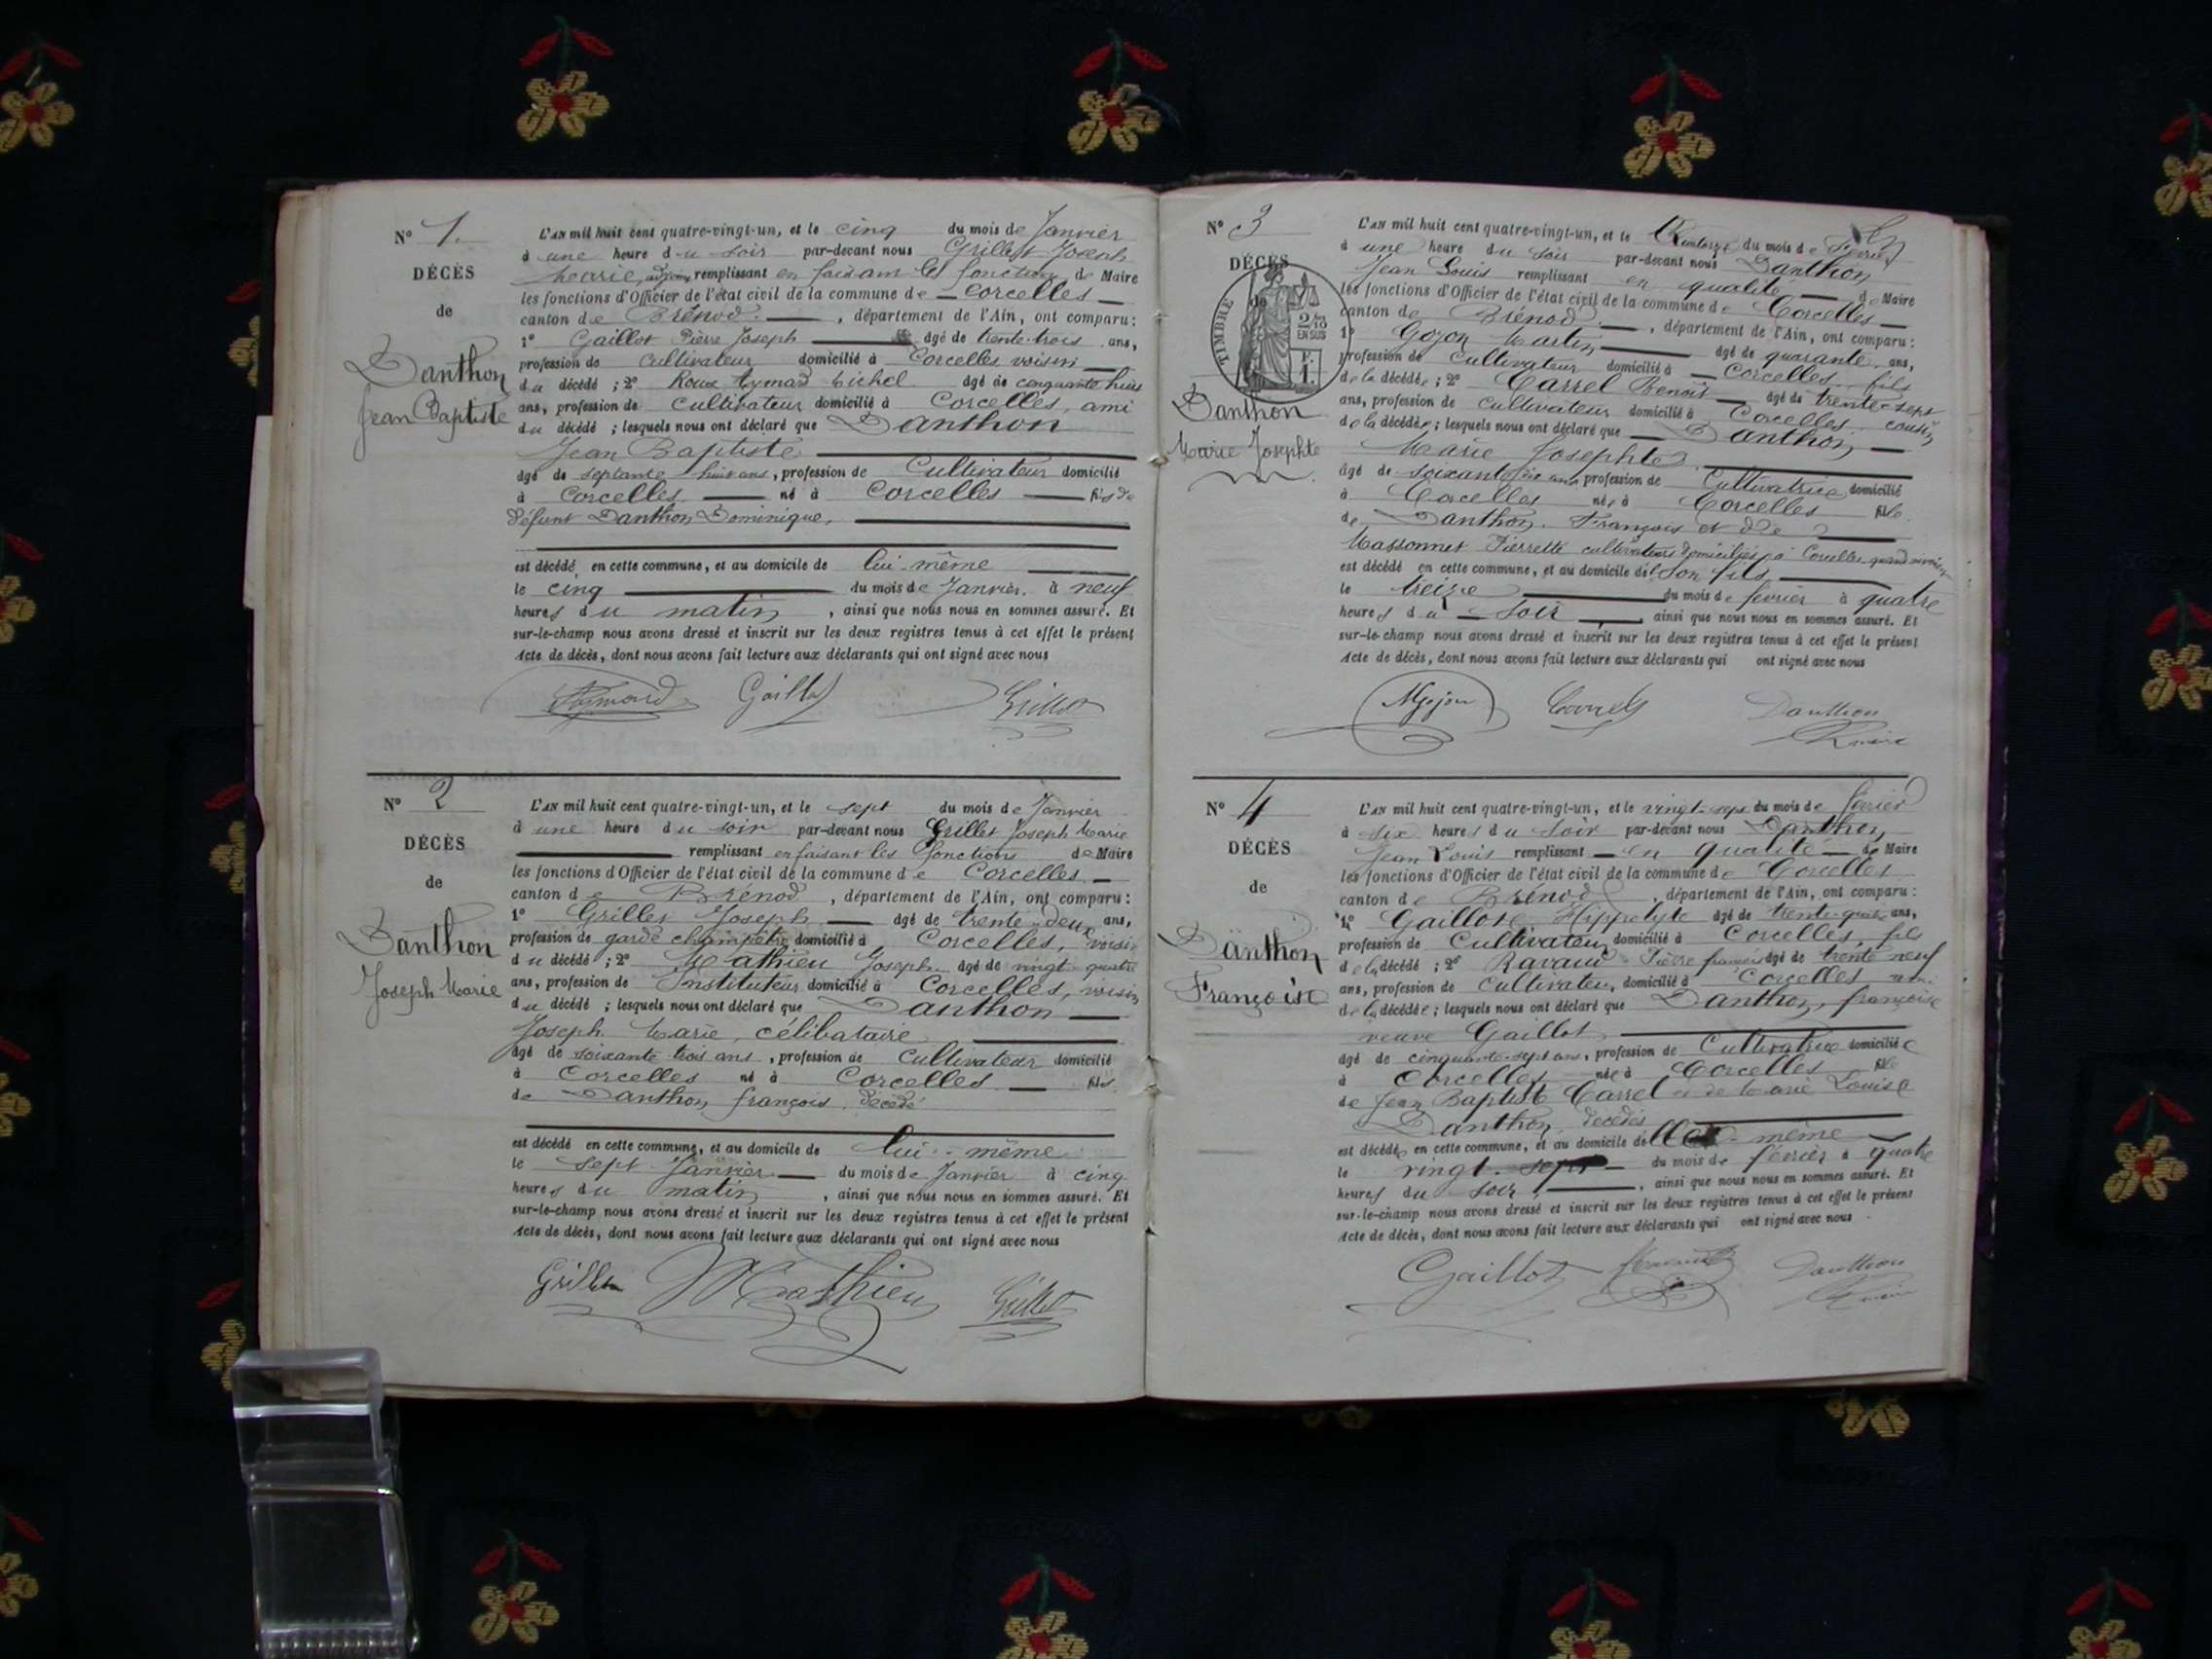 N° 1.
DÉCÈS
de
Danthon
Jean Baptiste
L'AN mil huit cent quatre-vingt-un, et le cinq du mois de Janvier
à une heure du soir par-devant nous Grillet Joseph
Marie, adjoint remplissant en faisant les fonctions de Maire
les fonctions d'Officier de l'état civil de la commune de — Corcelles —
canton de Brénod. — , département de l'Ain, ont comparu :
1° Gaillot Pierre Joseph — âgé de trente-trois ans,
profession de Cultivateur domicilié à Corcelles voisin —
du décédé ; 2° Roux Aymard Michel âgé de cinquante huit
ans, profession de Cultivateur domicilié à Corcelles, ami
du décédé ; lesquels nous ont déclaré que Danthon
Jean Baptiste —
âgé de septante huit ans, profession de Cultivateur domicilié
à Corcelles — né à Corcelles — fils de
défunt Danthon Dominique, —
est décédé en cette commune, et au domicile de lui-même —
le cinq — du mois de Janvier. à neuf
heures du matin , ainsi que nous nous en sommes assuré. Et
sur-le-champ nous avons dressé et inscrit sur les deux registres tenus à cet effet le présent
Acte de décès, dont nous avons fait lecture aux déclarants qui ont signé avec nous
Aymard Gaillot Grillet
N° 2
DÉCÈS
de
Danthon
Joseph Marie
L'AN mil huit cent quatre-vingt-un, et le sept du mois de Janvier
à une heure du soir par-devant nous Grillet Joseph Marie
— remplissant en faisant les fonctions de Maire
les fonctions d'Officier de l'état civil de la commune de Corcelles —
canton de Brénod , département de l'Ain, ont comparu :
1° Grillet Joseph — âgé de trente-deux ans,
profession de garde champêtre domicilié à Corcelles, voisin
du décédé ; 2° Mathieu Joseph âgé de vingt quatre
ans, profession de Instituteur domicilié à Corcelles, voisin
du décédé ; lesquels nous ont déclaré que Danthon —
Joseph Marie, célibataire —
âgé de soixante trois ans , profession de Cultivateur domicilié
à Corcelles né à Corcelles — fils
de Danthon françois. décédé
est décédé en cette commune, et au domicile de lui-même
le sept Janvier — du mois de Janvier à cinq
heures du matin , ainsi que nous nous en sommes assuré. Et
sur-le-champ nous avons dressé et inscrit sur les deux registres tenus à cet effet le présent
Acte de décès, dont nous avons fait lecture aux déclarants qui ont signé avec nous
Grillet Mathieu Grillet
N° 3
DÉCÈS
de
TIMBRE
2/10
EN SUS
F.
1.
Danthon
Marie Josephte
L'AN mil huit cent quatre-vingt-un, et le Quatorze du mois de Février
à une heure du soir par-devant nous Danthon
Jean Louis remplissant en qualité — de Maire
les fonctions d'Officier de l'état civil de la commune de Corcelles —
canton de Brénod — , département de l'Ain, ont comparu :
1° Gojon Martin — âgé de quarante ans,
profession de Cultivateur domicilié à — Corcelles fils
de la décédée ; 2° Carrel Benoit — âgé de trente-sept
ans, profession de Cultivateur domicilié à Corcelles cousin
de la décédée ; lesquels nous ont déclaré que — Danthon —
Marie Josephte —
âgé de soixante dix ans profession de Cultivatrice domicilié
à Corcelles née à Corcelles fille
de Danthon François et de —
Massonnet Pierrette cultivateurs domiciliés à Corcelles quand
est décédé en cette commune, et au domicile de son fils —
le treize — du mois de février à quatre
heures du — soir — ainsi que nous nous en sommes assuré. Et
sur-le-champ nous avons dressé et inscrit sur les deux registres tenus à cet effet le présent
Acte de décès, dont nous avons fait lecture aux déclarants qui ont signé avec nous
MGojon Carrel Danthon
maire
N° 4
DÉCÈS
de
Danthon
Françoise
L'AN mil huit cent quatre-vingt-un, et le vingt-sept du mois de février
à six heures du soir par-devant nous Danthon
Jean Louis remplissant — en qualité — de Maire
les fonctions d'Officier de l'état civil de la commune de Corcelles
canton de Brénod , département de l'Ain, ont comparu :
1° Gaillot Hippolyte âgé de trente-quatre ans,
profession de Cultivateur domicilié à Corcelles, fils
de la décédé ; 2° Ravaud Pierre françois âgé de trente neuf
ans, profession de Cultivateur domicilié à Corcelles ami
de la décédée ; lesquels nous ont déclaré que Danthon, françoise
veuve Gaillot —
âgé de cinquante-sept ans, profession de Cultivatrice domiciliée
à Corcelles née à Corcelles fille
de Jean Baptiste Carrel et de Marie Louise
Danthon, décédés —
est décédée en cette commune, et au domicile de elle-même —
le vingt-sept — du mois de février à quatre
heures du soir, — , ainsi que nous nous en sommes assuré. Et
sur-le-champ nous avons dressé et inscrit sur les deux registres tenus à cet effet le présent
Acte de décès, dont nous avons fait lecture aux déclarants qui ont signé avec nous
Gaillot Ravaud Danthon
maire